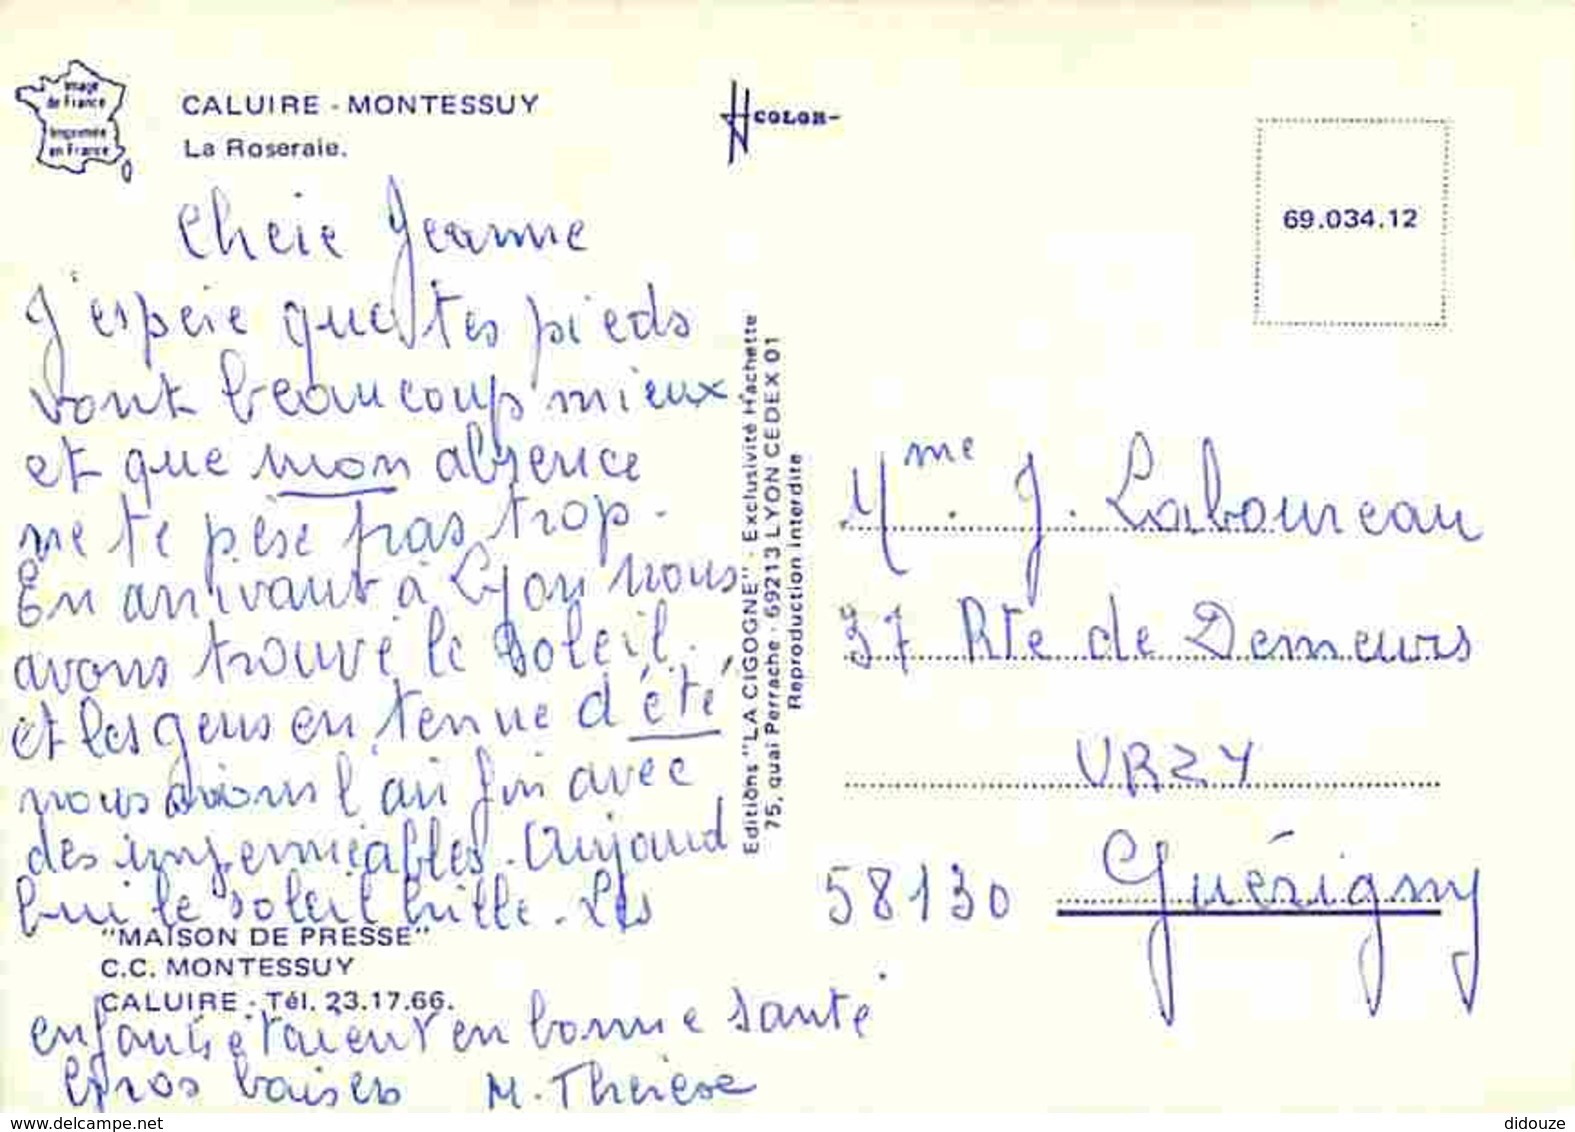 Image
de France
Imprimée
en France
CALUIRE - MONTESSUY
La Roseraie.
COLOR-
69.034.12
Chère Jeanne
J'espère que tes pieds
vont beaucoup mieux
et que mon absence
ne te pèse pas trop.
En arrivant à Lyon nous
avons trouvé le soleil.
et les gens en tenue d'été
nous avions l'air fin avec
des imperméables. Aujourd
hui le soleil brille. Les
"MAISON DE PRESSE"
C.C. MONTESSUY
CALUIRE - Tél. 23.17.66.
enfants étaient en bonne santé
Gros baisers M. Thérèse
Editions "LA CIGOGNE" - Exclusivité Hachette
75, quai Perrache - 69213 LYON CEDEX 01
Reproduction interdite
Mme. J. Laboureau
37 Rte de Demeurs
URZY
58130 Guérigny
www.delcampe.net
didouze